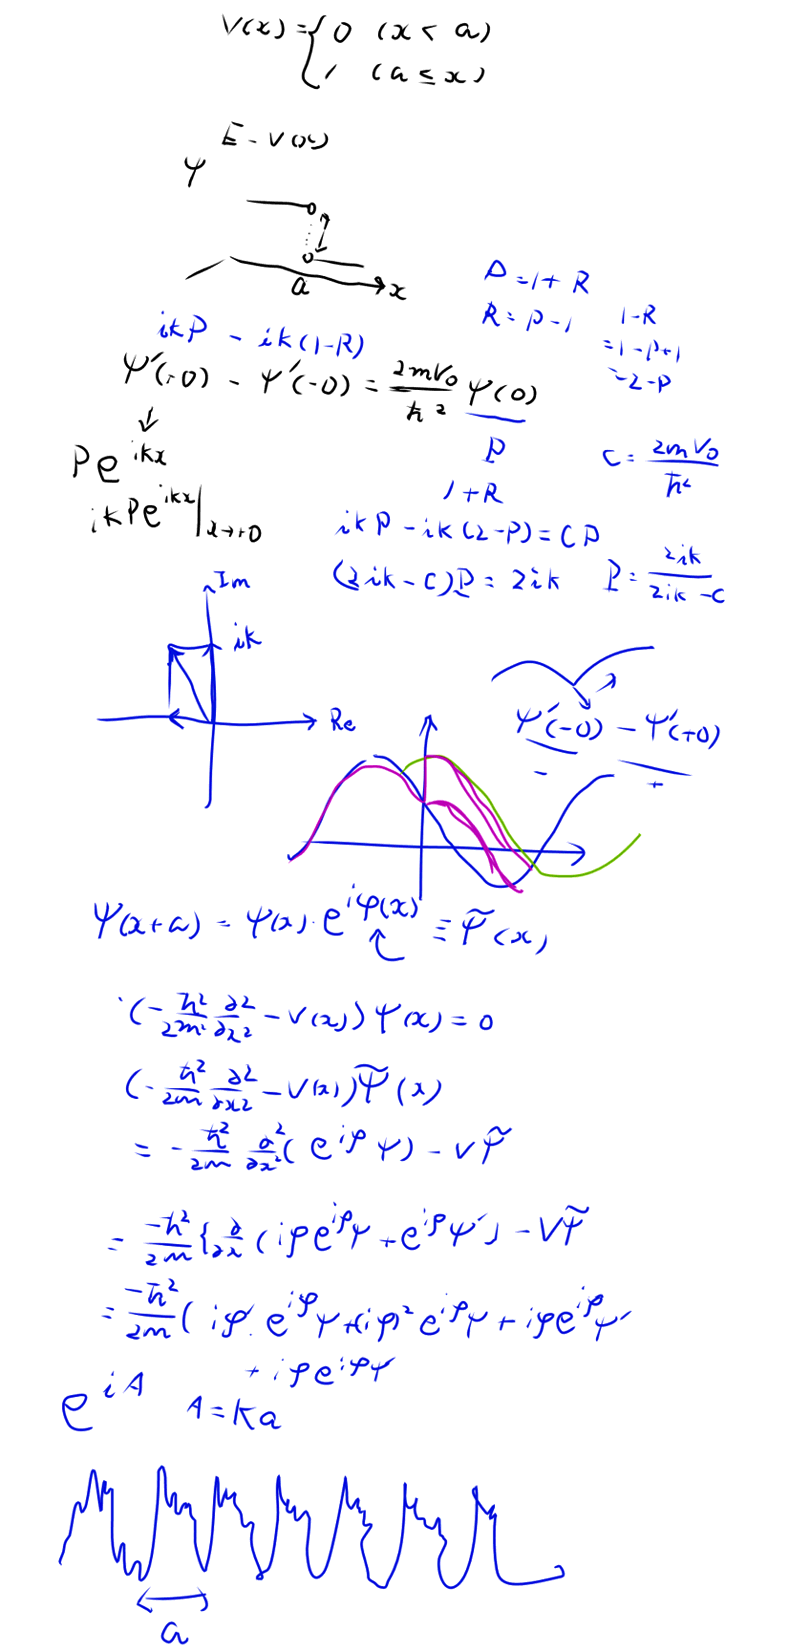 V(x) = { 0 (x < a)
1 (a ≤ x)
E - V(x)
ψ
a x
P = 1 + R
R = P - 1 1-R
= 1 - P + 1
= 2 - P
ikP - ik(1-R)
ψ'(+0) - ψ'(-0) = 2mV₀/ħ² ψ(0)
P
1+R
C = 2mV₀/ħ²
Pe^{ikx}
ikPe^{ikx}|_{x→+0}
ikP - ik(2-P) = CP
(2ik - C)P = 2ik P = 2ik/(2ik - C)
Im
ik
Re
ψ'(-0) - ψ'(+0)
- +
ψ(x+a) = ψ(x)·e^{iφ(x)} ≡ ψ̃(x)
(-ħ²/2m ∂²/∂x² - V(x)) ψ(x) = 0
(-ħ²/2m ∂²/∂x² - V(x)) ψ̃(x)
= -ħ²/2m ∂²/∂x² (e^{iφ} ψ) - Vψ̃
= -ħ²/2m {∂/∂x (iφe^{iφ}ψ + e^{iφ}ψ') - Vψ̃
= -ħ²/2m (iφ' e^{iφ}ψ + (iφ)² e^{iφ}ψ + iφe^{iφ}ψ'
+ iφe^{iφ}ψ'
e^{iA} A = ka
a